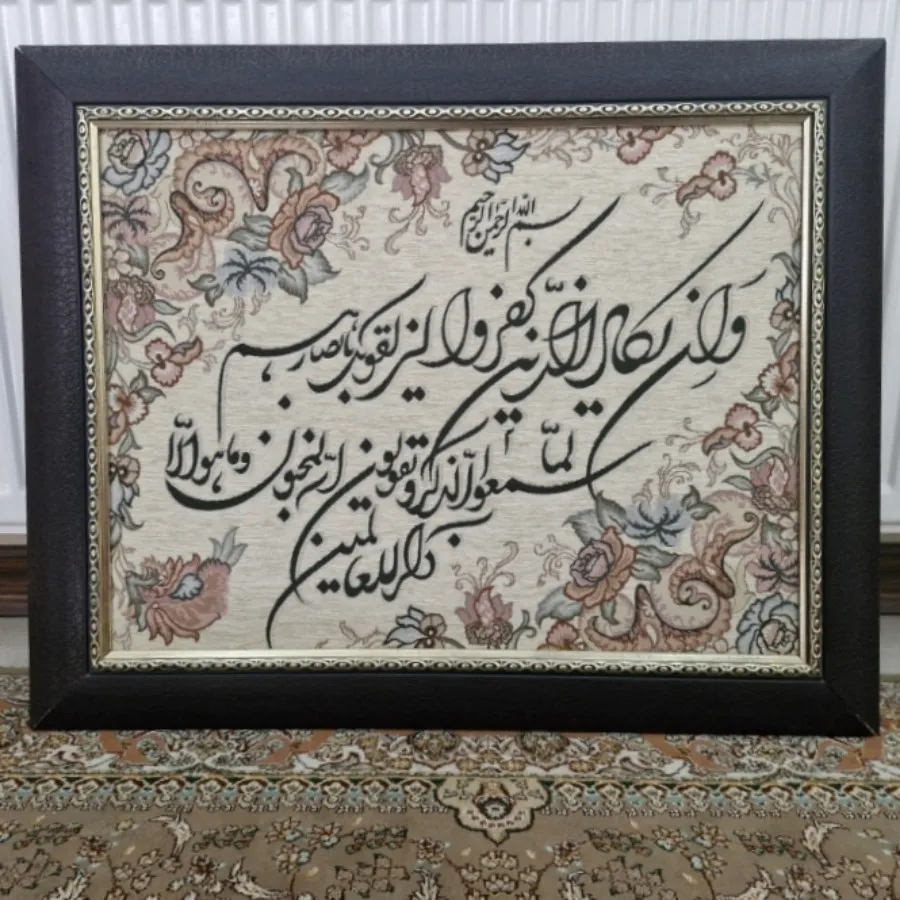 بسم الله الرحمن الرحیم
وَاِن یکاد الّذین کفروا لیزلقونک بابصارهم
لمّا سمعوا الذکر و یقولون انّه لمجنون و ما هو الّا
ذکر للعالمین